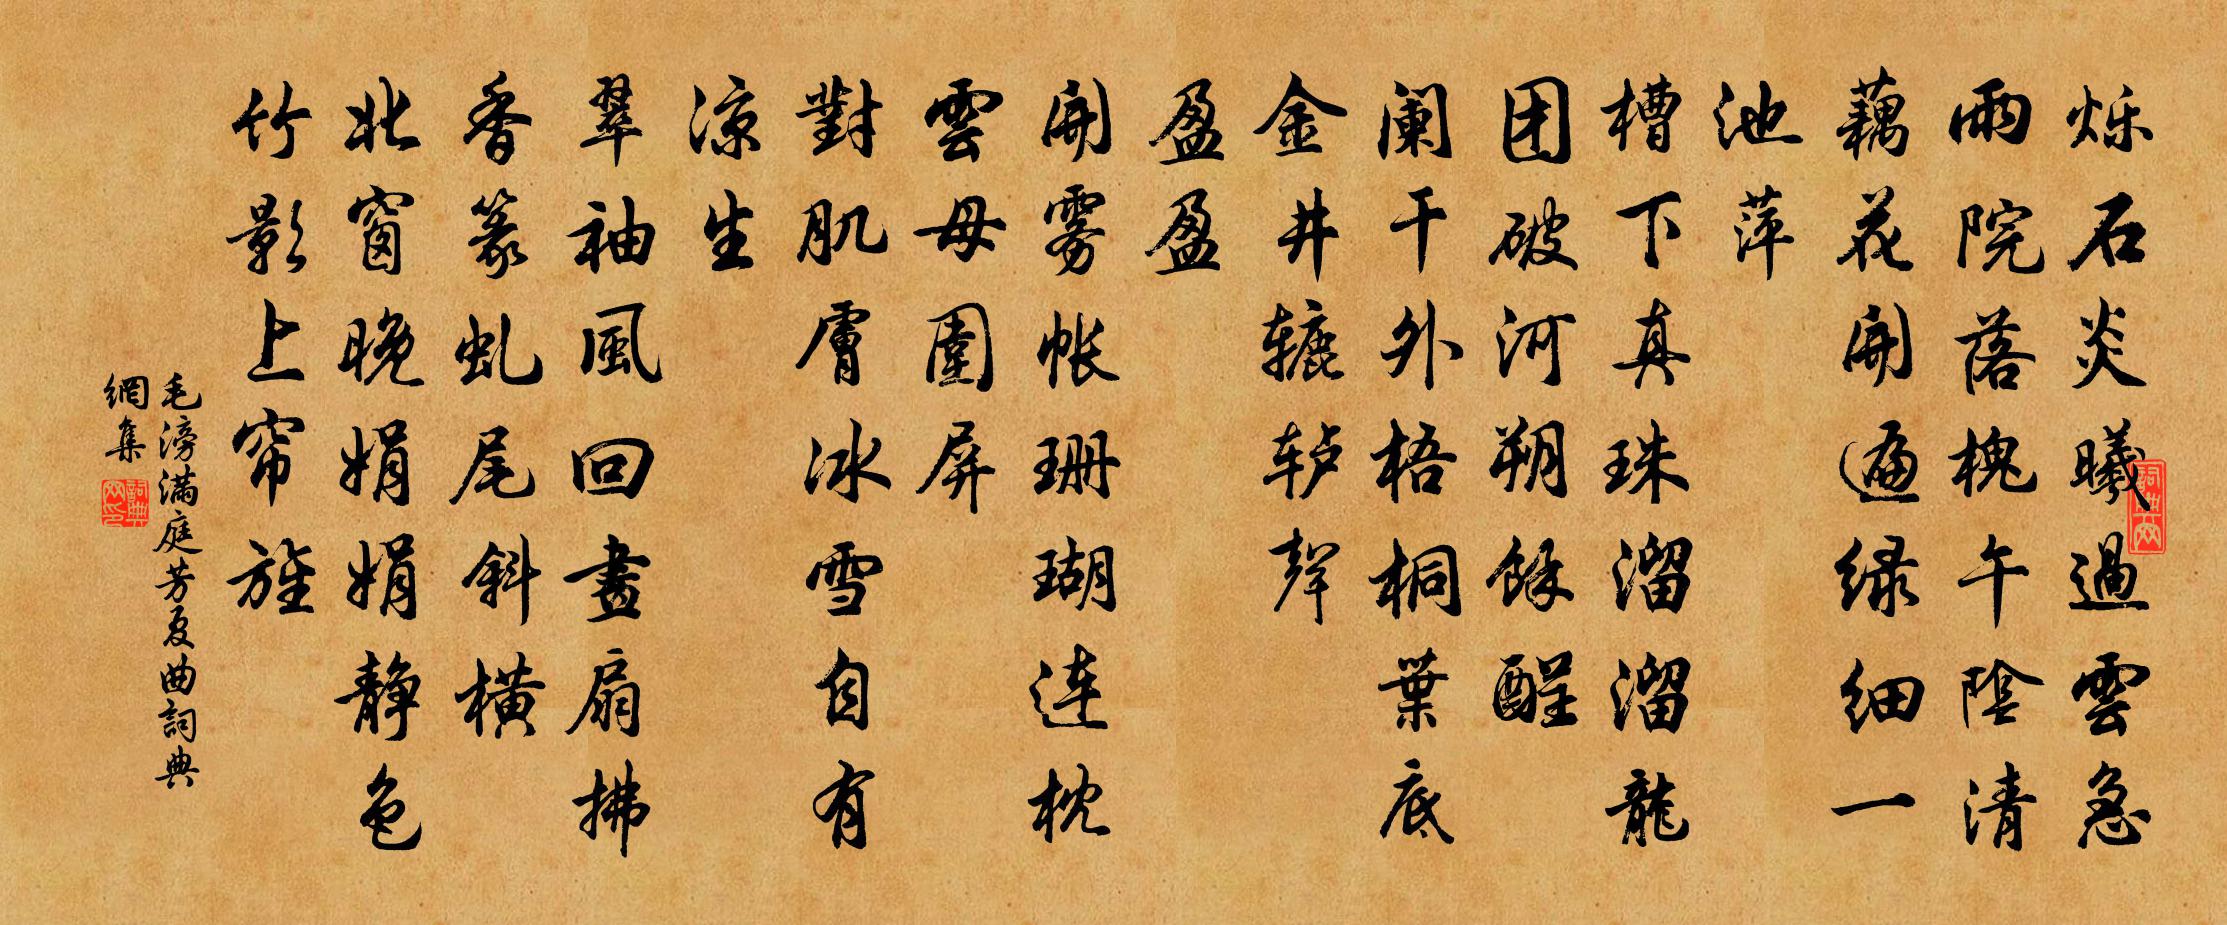 烁石炎曦過雲急
雨院落槐午陰清
藕花開遍绿细一
池萍
槽下真珠溜溜龍
团破河朔餘醒
阑干外梧桐葉底
金井辘轳聲
盈盈
開雾帐珊瑚连枕
雲母圍屏
對肌膚冰雪自有
凉生
翠袖風回畫扇拂
香篆虬尾斜橫
北窗晚娟娟静色
竹影上帘旌
毛滂满庭芳夏曲詞典
網集
詞典网
詞典网印